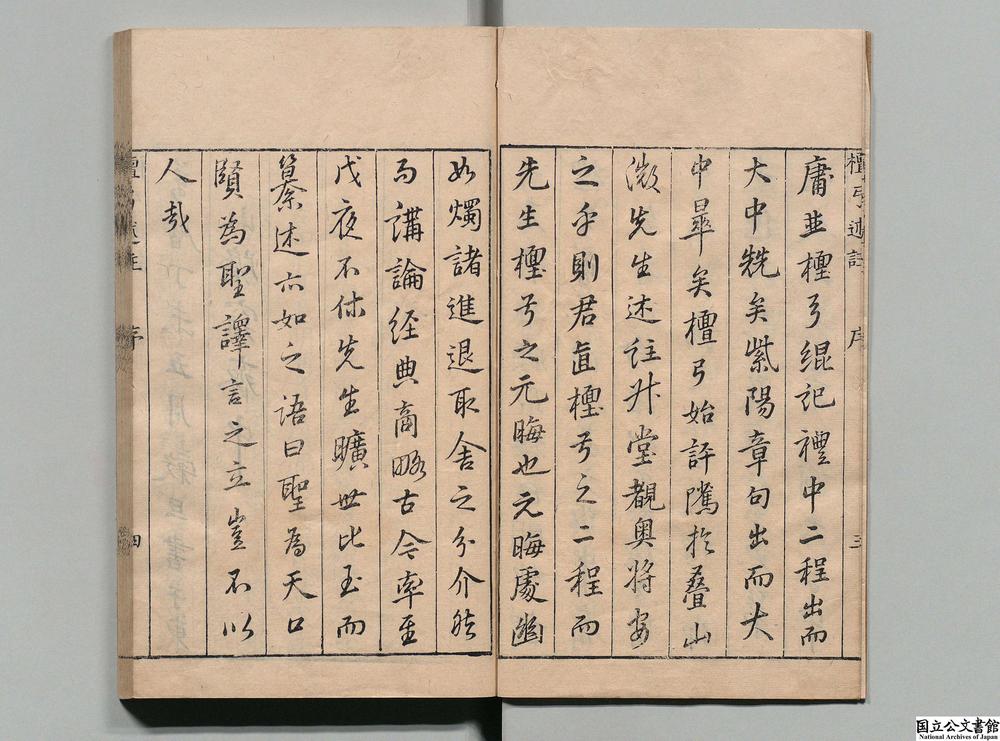 檀弓述註 序 三
庸並檀弓緄記禮中二程出而
大中矣紫陽章句出而大
中矣檀弓始評隲於疊山
微先生述註升堂覩奧將安
之乎則君直檀弓之二程而
先生檀弓之元晦也元晦處幽
如燭諸進退取舍之分介然
而講論經典商略古今率至
戊夜不休先生曠世比玉而
纂述亦如之語曰聖為天口
賢為聖譯言之立豈不以
人哉
檀弓述註 序 四
国立公文書館
National Archives of Japan